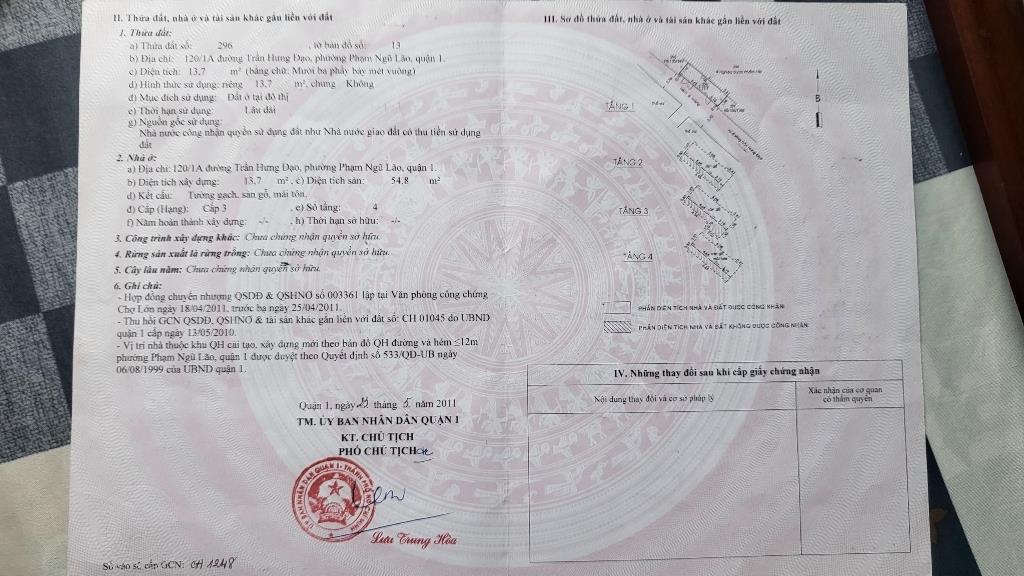 II. Thửa đất, nhà ở và tài sản khác gắn liền với đất
1. Thửa đất:
a) Thửa đất số: 296 , tờ bản đồ số: 13
b) Địa chỉ: 120/1A đường Trần Hưng Đạo, phường Phạm Ngũ Lão, quận 1.
c) Diện tích: 13,7 m² (bằng chữ: Mười ba phẩy bảy mét vuông)
d) Hình thức sử dụng: riêng 13,7 m², chung Không
đ) Mục đích sử dụng: Đất ở tại đô thị
e) Thời hạn sử dụng: Lâu dài
g) Nguồn gốc sử dụng:
Nhà nước công nhận quyền sử dụng đất như Nhà nước giao đất có thu tiền sử dụng
đất
2. Nhà ở:
a) Địa chỉ: 120/1A đường Trần Hưng Đạo, phường Phạm Ngũ Lão, quận 1.
b) Diện tích xây dựng: 13,7 m² , c) Diện tích sàn: 54,8 m²
d) Kết cấu: Tường gạch, sàn gỗ, mái tôn.
đ) Cấp (Hạng): Cấp 3 , e) Số tầng: 4
f) Năm hoàn thành xây dựng: -/- , h) Thời hạn sở hữu: -/-
3. Công trình xây dựng khác: Chưa chứng nhận quyền sở hữu.
4. Rừng sản xuất là rừng trồng: Chưa chứng nhận quyền sở hữu.
5. Cây lâu năm: Chưa chứng nhận quyền sở hữu.
6. Ghi chú:
- Hợp đồng chuyển nhượng QSDĐ & QSHNƠ số 003361 lập tại Văn phòng công chứng
Chợ Lớn ngày 18/04/2011, trước bạ ngày 25/04/2011.
- Thu hồi GCN QSDĐ, QSHNƠ & tài sản khác gắn liền với đất số: CH 01045 do UBND
quận 1 cấp ngày 13/05/2010.
- Vị trí nhà thuộc khu QH cải tạo, xây dựng mới theo bản đồ QH đường và hẻm ≤12m
phường Phạm Ngũ Lão, quận 1 được duyệt theo Quyết định số 533/QĐ-UB ngày
06/08/1999 của UBND quận 1.
Quận 1, ngày 23 tháng 5 năm 2011
TM. ỦY BAN NHÂN DÂN QUẬN 1
KT. CHỦ TỊCH
PHÓ CHỦ TỊCH
Lưu Trung Hòa
Số vào sổ cấp GCN: CH 1248
III. Sơ đồ thửa đất, nhà ở và tài sản khác gắn liền với đất
B
TẦNG 1
TẦNG 2
TẦNG 3
TẦNG 4
PHẦN DIỆN TÍCH NHÀ VÀ ĐẤT ĐƯỢC CÔNG NHẬN
PHẦN DIỆN TÍCH NHÀ VÀ ĐẤT KHÔNG ĐƯỢC CÔNG NHẬN
IV. Những thay đổi sau khi cấp giấy chứng nhận
Nội dung thay đổi và cơ sở pháp lý
Xác nhận của cơ quan
có thẩm quyền